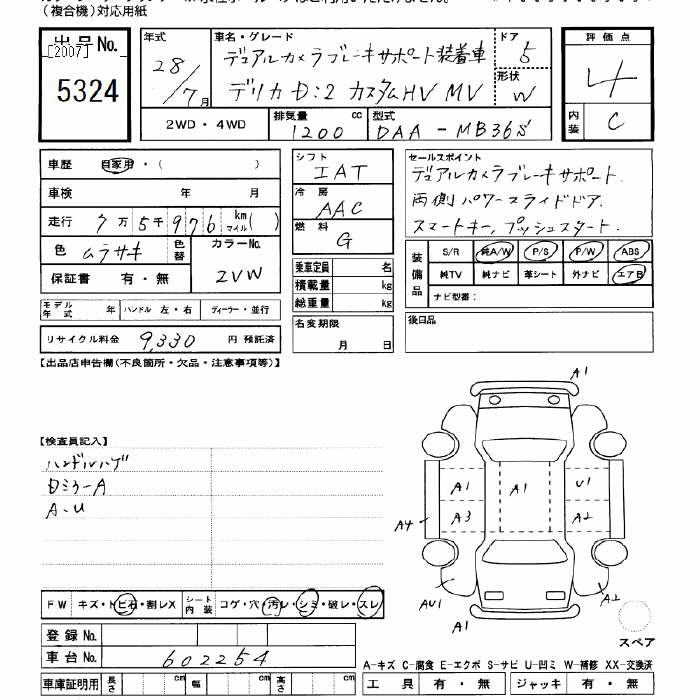 (複合機)対応用紙
出品No.
[2007]
5324
年式
28/7月
車名・グレード
デュアルカメラブレーキサポート装着車
デリカD:2 カスタムHV MV
ドア
5
形状
W
評価点
4
内装
C
2WD・4WD
排気量
1200
cc
型式
DAA-MB36S
車歴 自家用・( )
車検 年 月
走行 7万5千976 km マイル( )
色 ムラサキ
色替
カラーNo.
2VW
保証書 有・無
モデル年式 年 ハンドル 左・右 ディーラー・並行
リサイクル料金 9,330 円 預託済
シフト
IAT
冷房
AAC
燃料
G
乗車定員 名
積載量 kg
総重量 kg
名変期限
月 日
セールスポイント
デュアルカメラブレーキサポート.
両側パワースライドドア.
スマートキー, プッシュスタート.
装備品
S/R 純A/W P/S P/W ABS
純TV 純ナビ 革シート 外ナビ エアB
ナビ型番:
後日品
【出品店申告欄(不良箇所・欠品・注意事項等)】
【検査員記入】
ハンドルハゲ
Dミラー A
A.U
A1
A1
A1
U1
A4
A3
A2
AU1
A1
A2
スペア
FW キズ・トビ石・割レX
シート内装 コゲ・穴・汚レ・シミ・破レ・スレ
登録No.
車台No. 602254
車庫証明用 長さ cm 幅 cm 高さ cm
A-キズ C-腐食 E-エクボ S-サビ U-凹ミ W-補修 XX-交換済
工具 有・無 ジャッキ 有・無